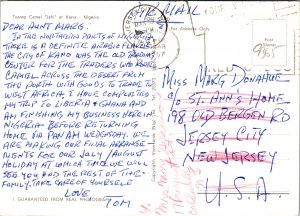 Tuareg Camel "Salt" at Kano - Nigeria
AIR MAIL
For Address Only
DEAR AUNT MARG.
IN THE NORTHERN PARTS OF NIGERIA
THERE IS A DEFINITE ARABIC FLAVOR
THE CITY OF KANO WAS THE OLD TRADING
CENTER FOR THE TRADERS WHO RODE
CAMEL ACROSS THE DESERT FROM
THE NORTH WITH GOODS TO TRADE TO
WEST AFRICA. I HAVE COMPLETED
MY TRIP TO LIBERIA & GHANA AND
AM FINISHING MY BUSINESS HERE IN
NIGERIA BEFORE RETURNING
HOME VIA PAN AM WEDNESDAY. WE
ARE MAKING OUR FINAL ARRANGE-
MENTS FOR OUR JULY/AUGUST
HOLIDAY AT WHICH TIME WE WILL
SEE YOU AND THE REST OF THE
FAMILY. TAKE CARE OF YOURSELF
LOVE
TOM
GUARANTEED FROM REAL PHOTOGRAPH
MISS MARG DONAHUE
C/O ST. ANN'S HOME
198 OLD BERGEN RD
JERSEY CITY
NEW JERSEY
U.S.A